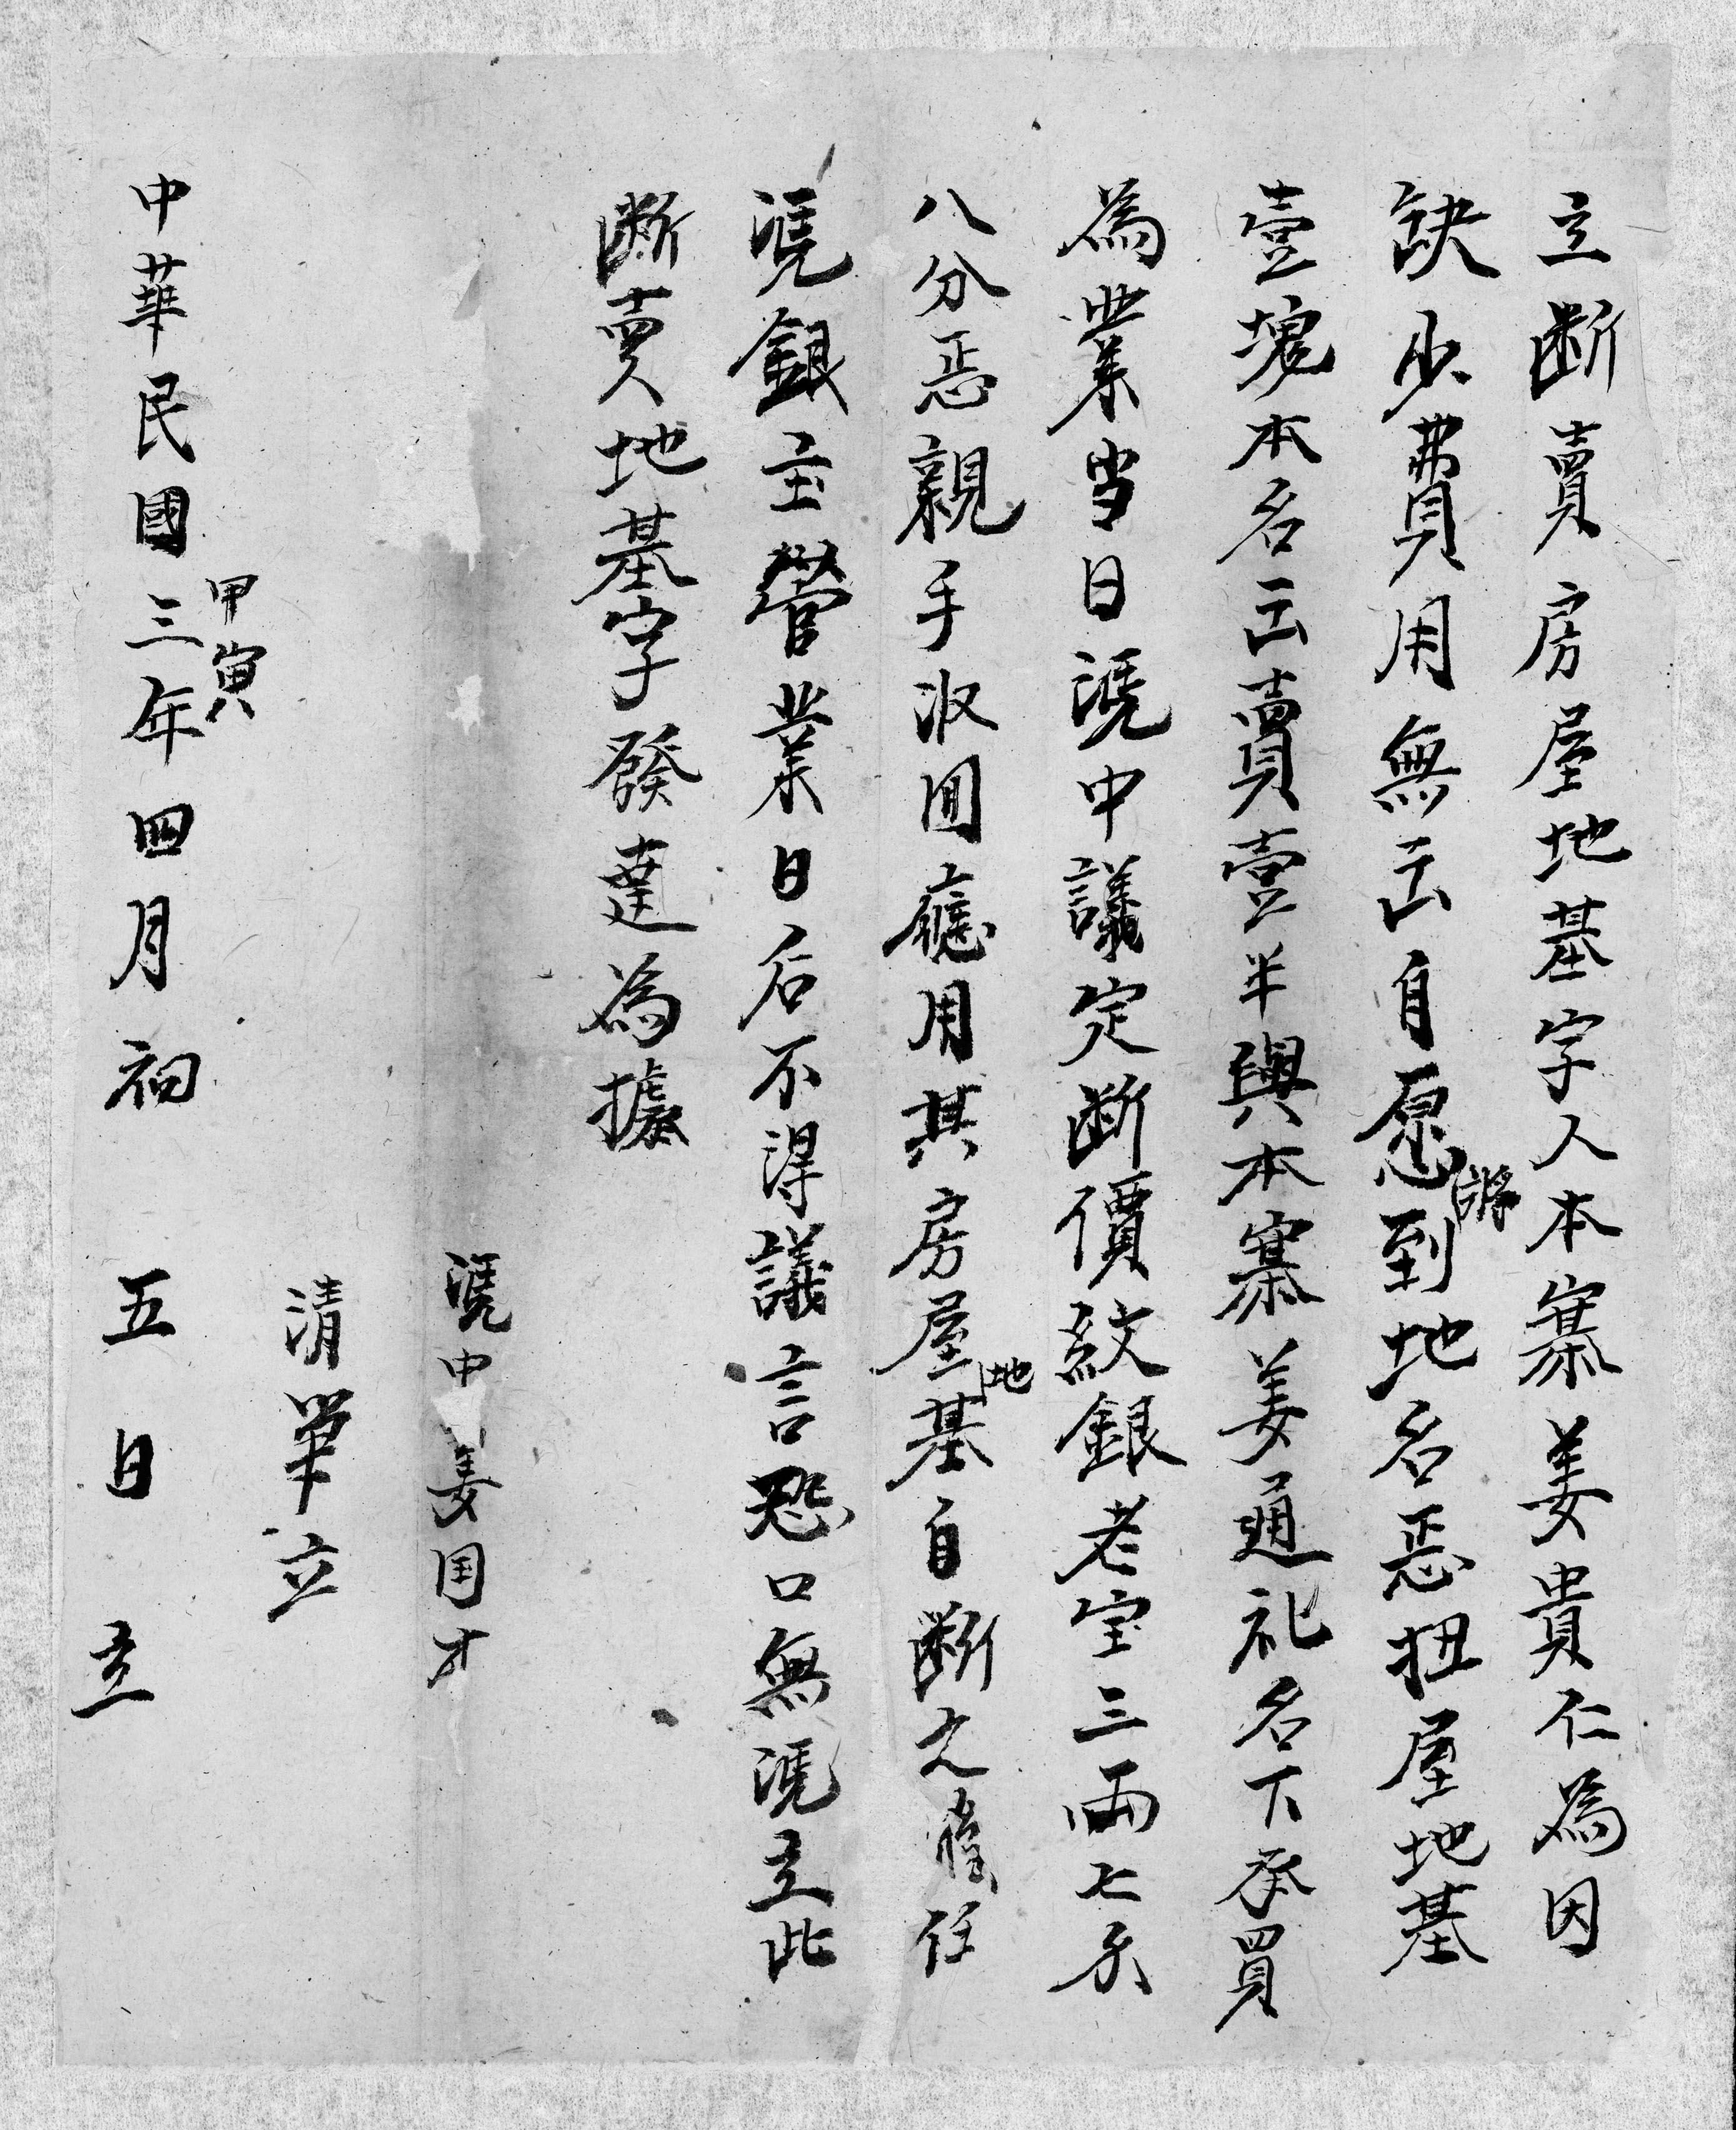 立断賣房屋地基字人本寨姜貴仁為因
缺少費用無出自愿將到地名惡扭屋地基
壹塊本名出賣壹半與本寨姜通礼名下承買
為業当日憑中議定断價紋銀老宝三両七分
八分惡親手收囬應用其房屋地基自断之後任
憑銀主營業日后不得議言恐口無憑立此
断賣地基字發達為據
憑中姜国才
清筆立
中華民國三年甲寅四月初五日立